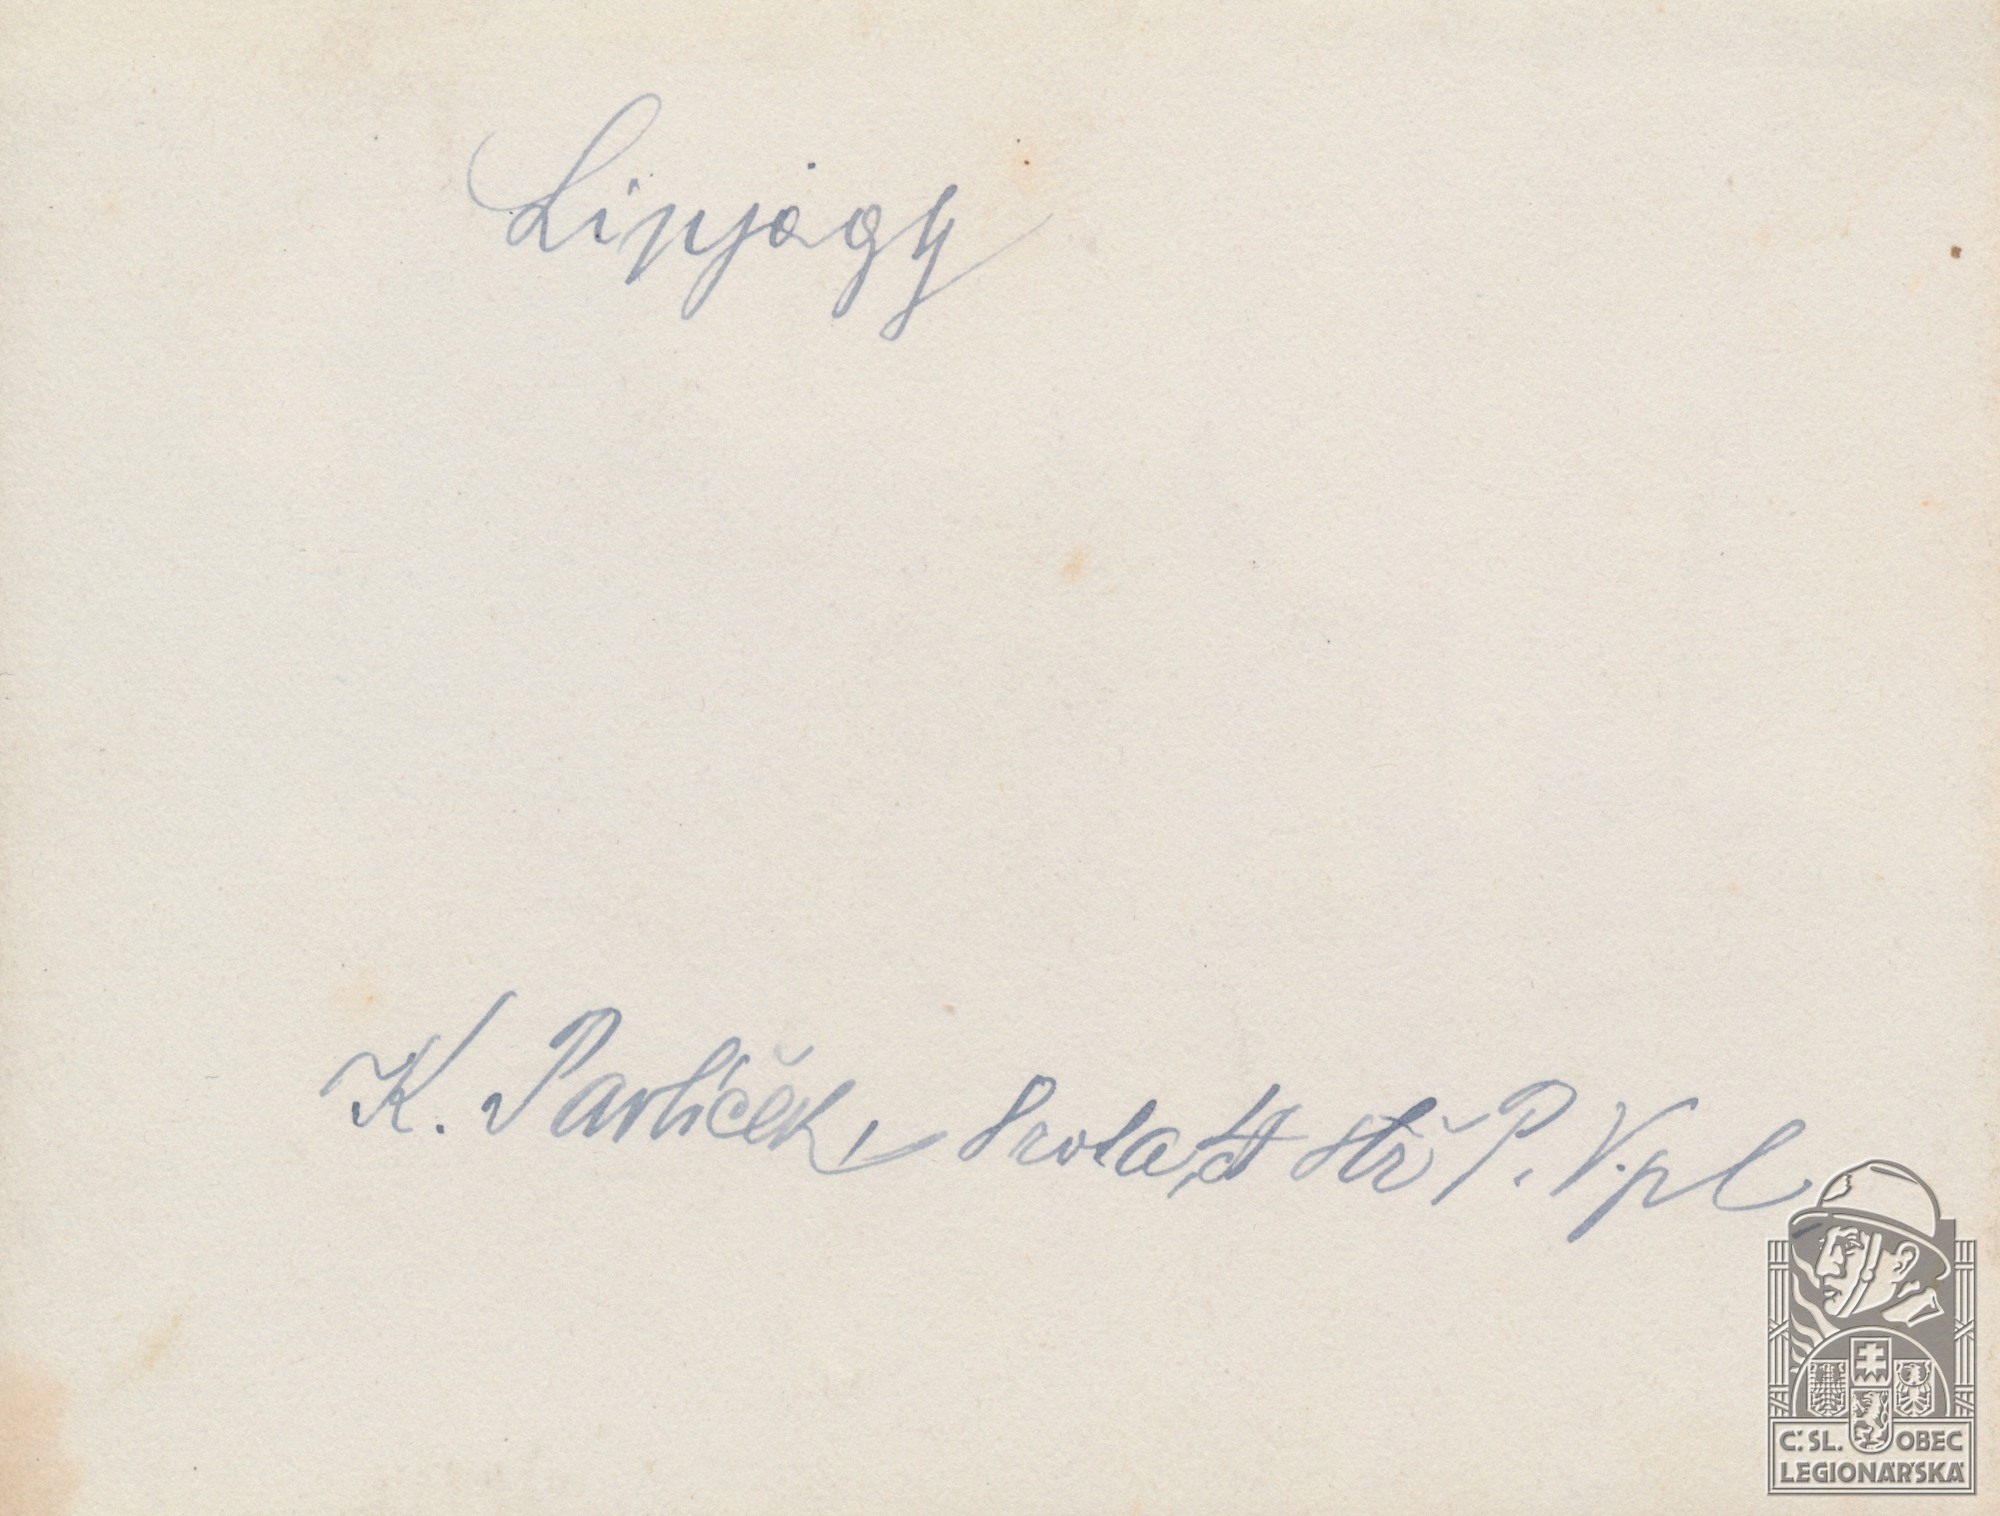 Lipjagy
K. Pavlíček, 8 rota, 4 stř P. V. pl
Č.SL. OBEC
LEGIONÁŘSKÁ